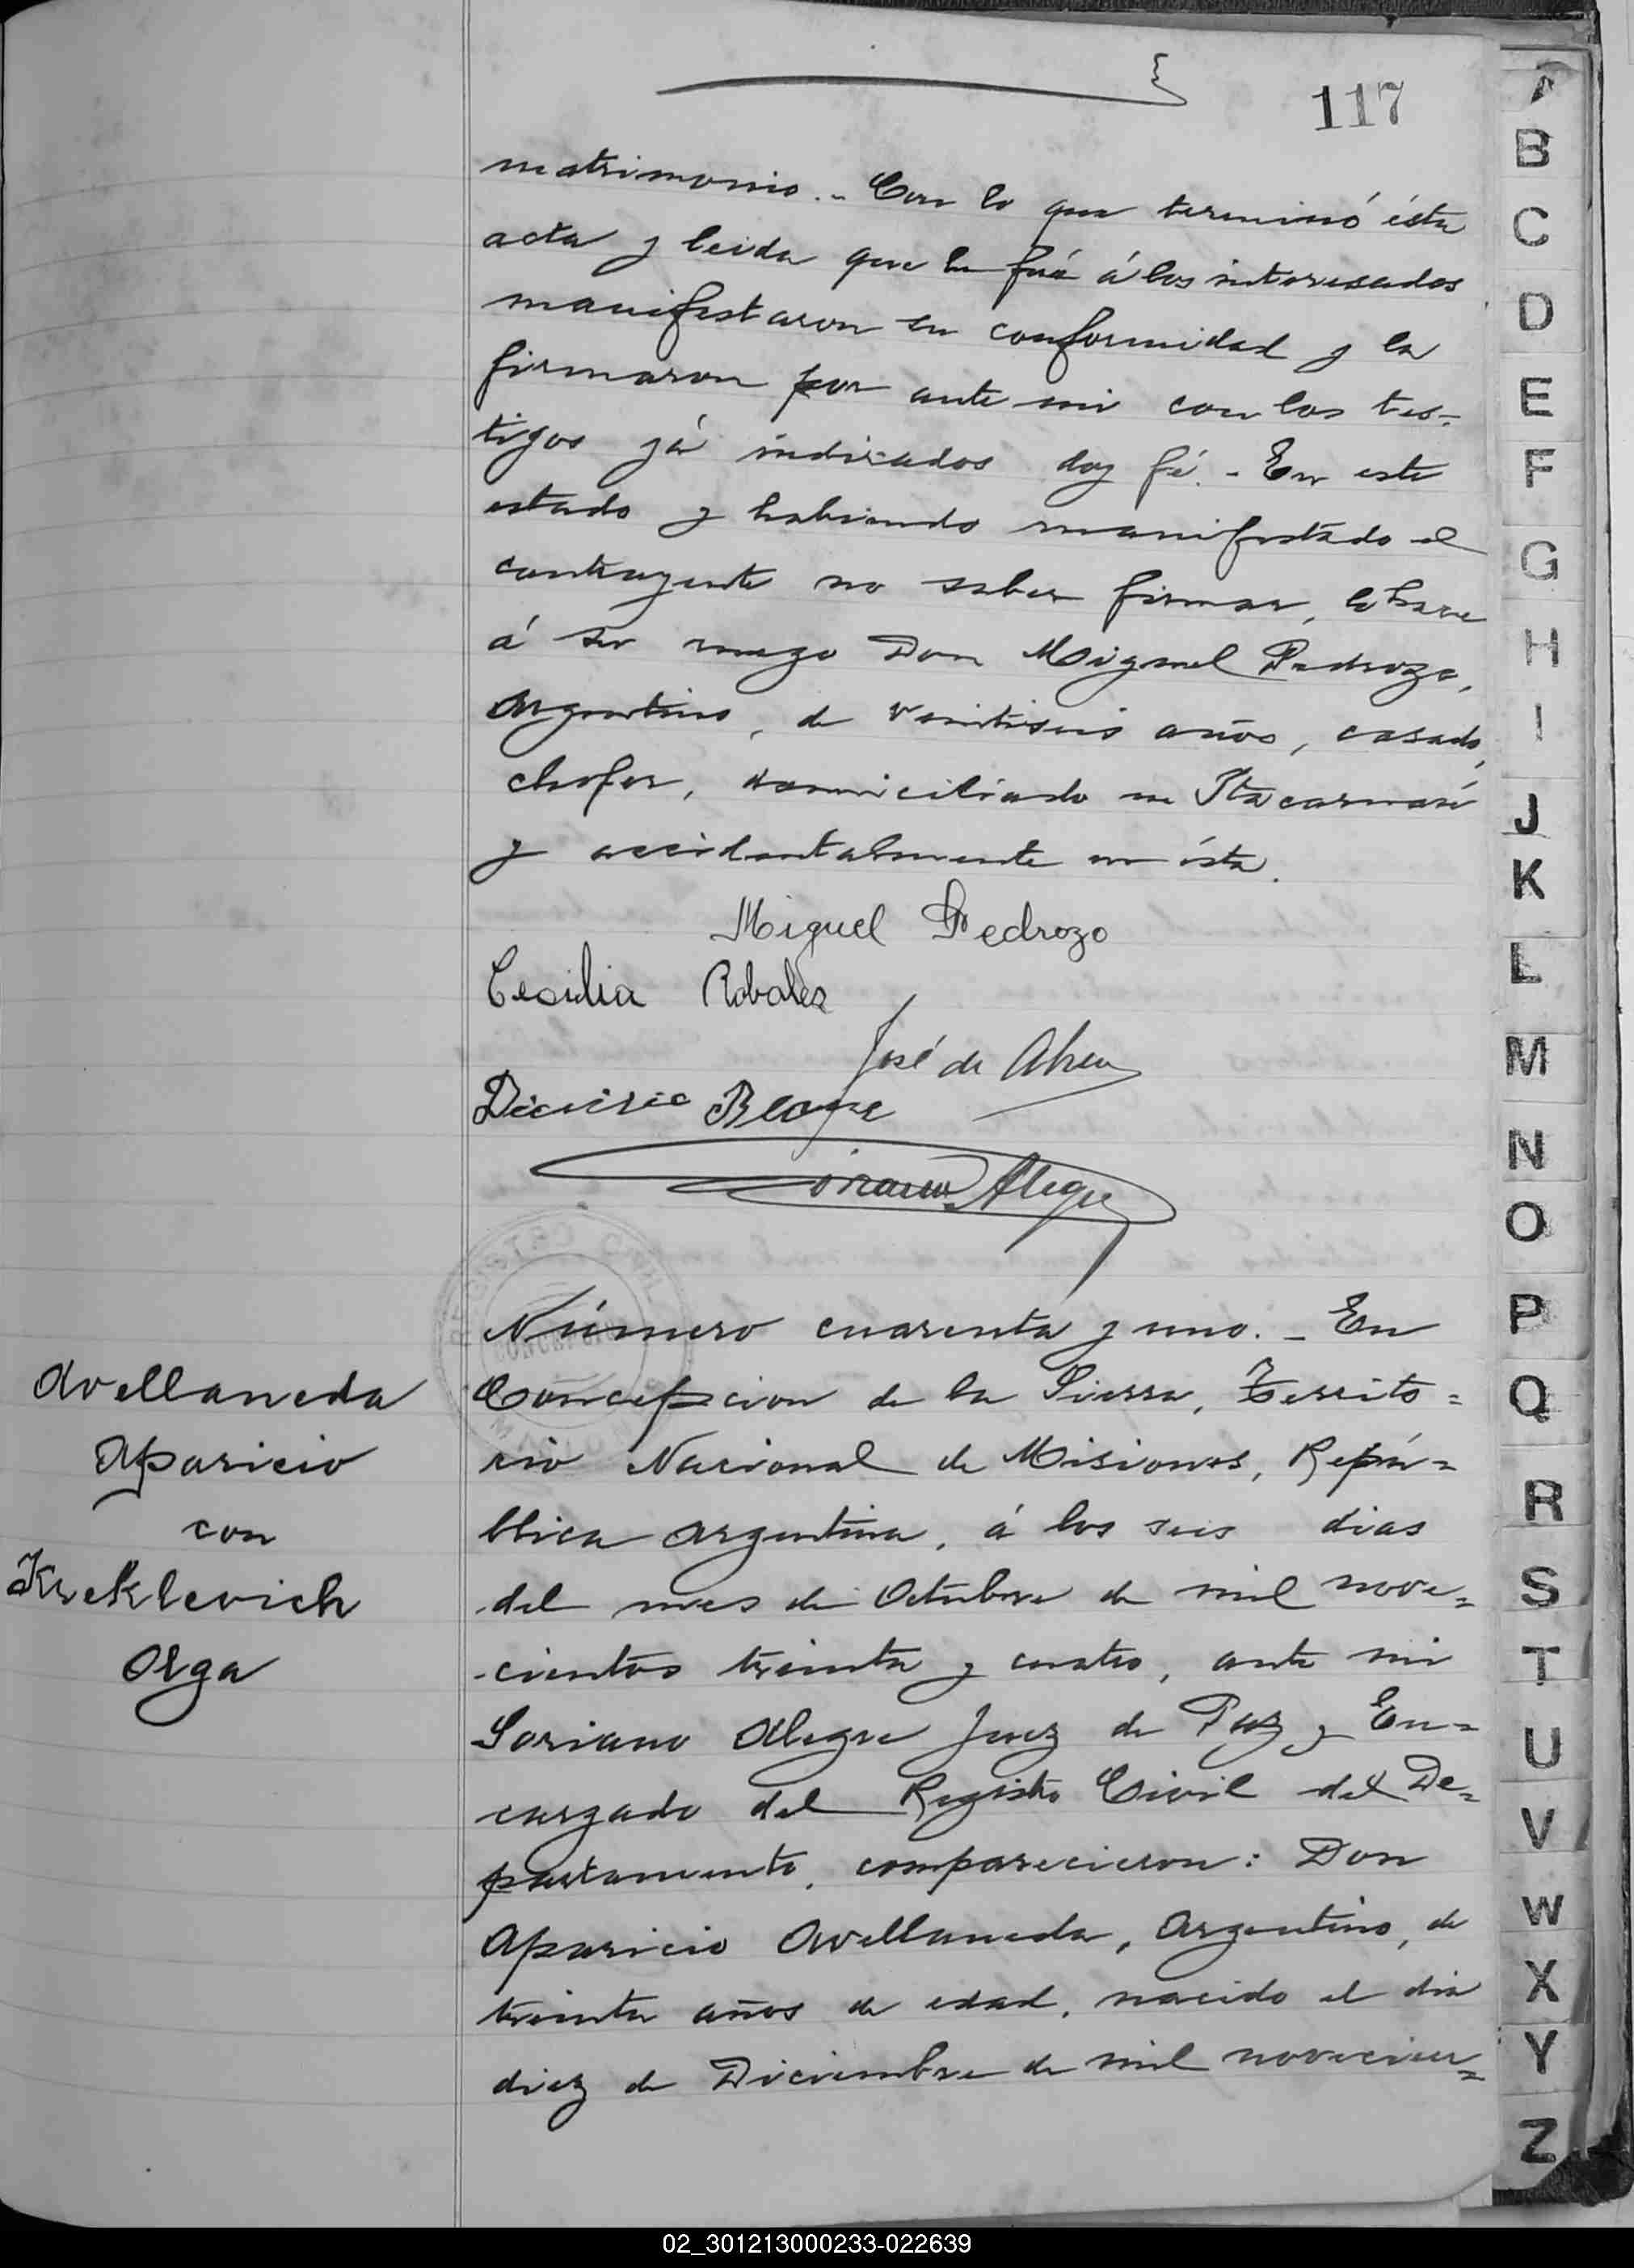 117
matrimonio.- Con lo que terminó ésta
acta y leida que les fué á los interesados
manifestaron su conformidad y la
firmaron por ante mi con los tes-
tigos yá indicados doy fé.- En este
estado y habiendo manifestado el
contrayente no saber firmar, lo hace
á su ruego Don Miguel Pedrozo,
Argentino, de veintiseis años, casado,
chofer, domiciliado en Itacaruaré
y accidentalmente en ésta.
Miguel Pedrozo
Cecilia Robales
José de Abreu
Soriano Alegre
Número cuarenta y uno.- En
Concepcion de la Sierra, Territo=
rio Nacional de Misiones, Repú=
blica Argentina, á los seis dias
del mes de Octubre de mil nove=
cientos treinta y cuatro, ante mi
Soriano Alegre Juez de Paz y En=
cargado del Registro Civil del De=
partamento, comparecieron: Don
Aparicio Avellaneda, Argentino, de
treinta años de edad, nacido el dia
diez de Diciembre de mil novecien=
Avellaneda
Aparicio
con
Kreklevich
Olga
A
B
C
D
E
F
G
H
I
J
K
L
M
N
O
P
Q
R
S
T
U
V
W
X
Y
Z
02_301213000233-022639